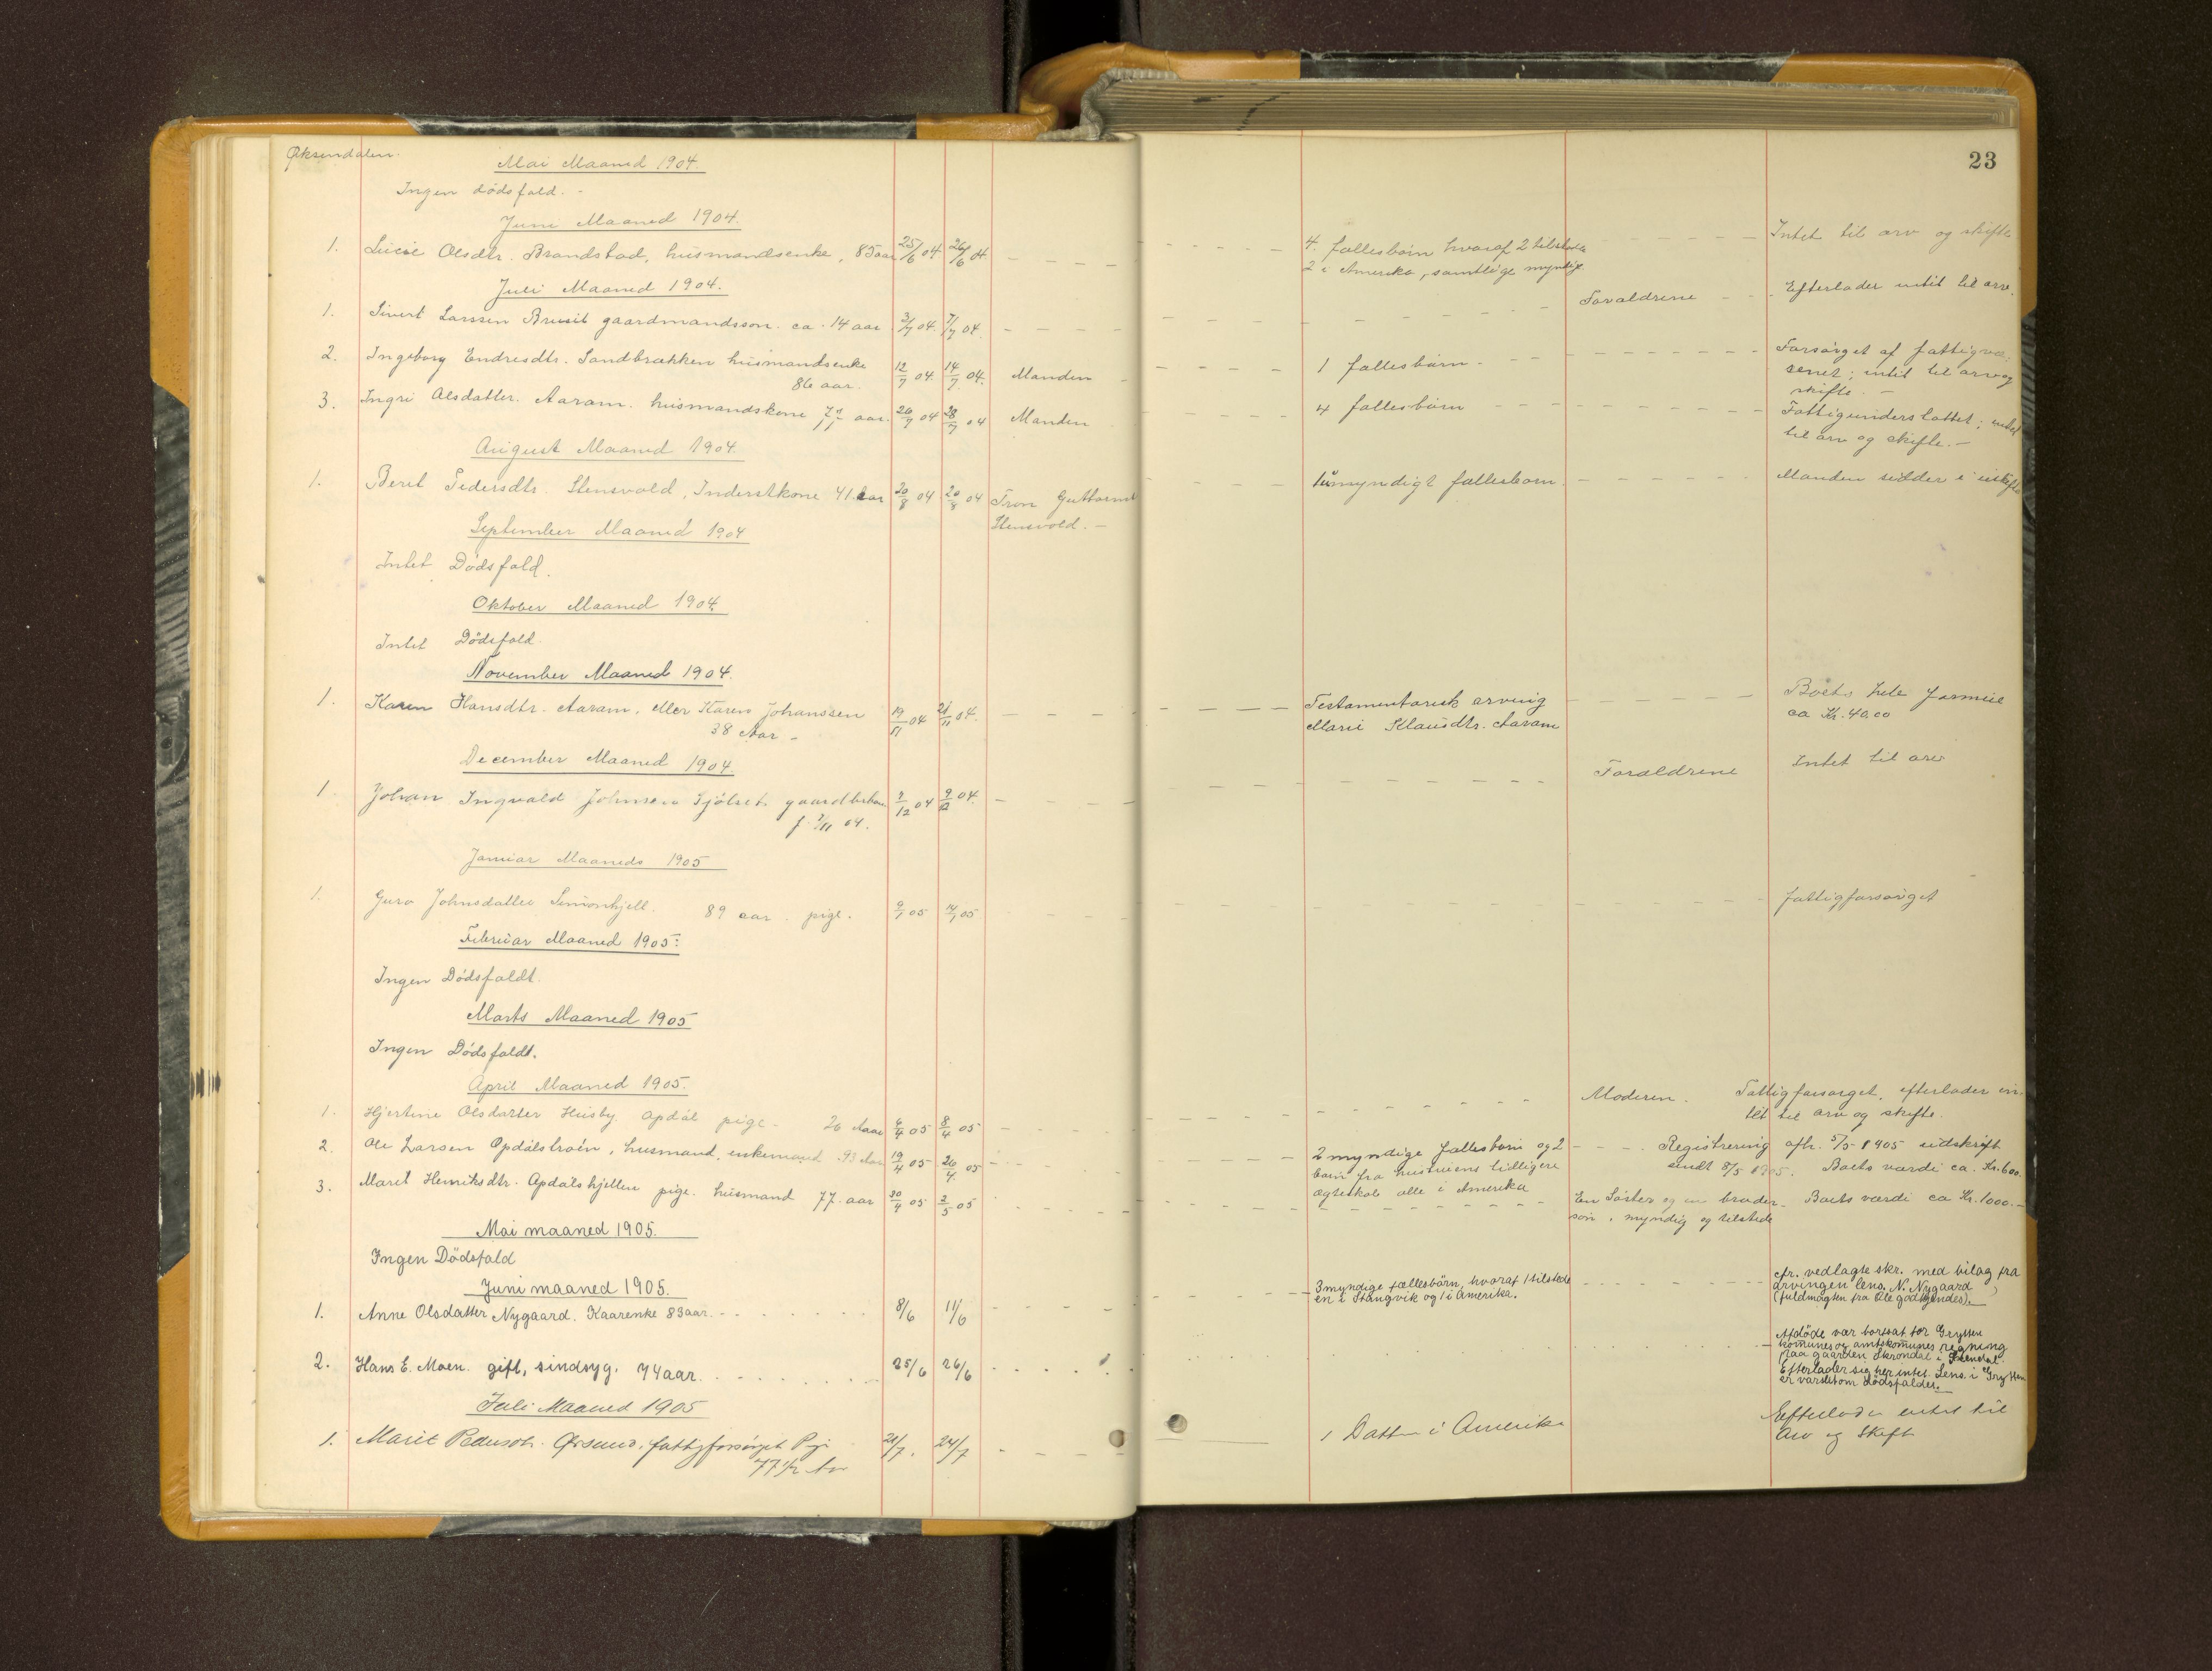 Øksendalen.
23
Mai Maaned 1904.
Ingen dödsfald. -
Juni Maaned 1904.
1. Lucie Olsdtr. Brandstad, husmandsenke, 85 aar 25/6 04 26/6 04 4 fællesbörn hvoraf 2 tilstede Intet til arv og skifte
2 i Amerika, samtlige myndige.
Juli Maaned 1904.
1. Sivert Larssen Brusit gaardmandssön. ca. 14 aar 3/7 04. 7/7 04. Forældrene Efterlader intet til arv.
2. Ingeborg Endresdtr. Sandbrækken husmandsenke 12/7 04. 14/7 04. Manden 1 fællesbörn - Forsörget af fattigvæ-
86 aar. senet; intet til arv og
skifte. -
3. Ingri Olsdatter. Aaram. husmandskone aar. 26/7 04 28/7 04 Manden 4 fællesbörn Fattigunderstöttet; intet
til arv og skifte. -
August Maaned 1904.
1. Beret Pedersdtr. Stensvold, Inderstkone 41 Aar 20/8 04 20/8 04 Tron Guttormsen 1 umyndigt fællesbarn. Manden sidder i uskifte
Stensvold. -
September Maaned 1904
Intet Dödsfald.
Oktober Maaned 1904.
Intet Dödsfald.
November Maaned 1904.
1. Karen Hansdtr. Aaram, eller Karen Johanssen 19/11 04 21/11 04. Testamentarisk arving Boets hele formue
38 Aar - Marie Klausdtr. Aaram ca Kr. 40,00
December Maaned 1904.
1 Johan Ingvald Johnsen Sjölset gaardbrbarn 7/12 04 9/12 04. Forældrene Intet til arv
f. 04.
Januar Maaneds 1905
1. Guro Johnsdatter Simonhjell. 89 aar. pige. 9/1 05 14/1 05 fattigforsörget
Februar Maaned 1905.
Ingen Dödsfaldt.
Marts Maaned 1905
Ingen Dödsfaldt.
April Maaned 1905.
1. Hjertine Olsdatter Husby. Opdöl pige - 26 Aar 4/4 05 8/4 05 Moderen. Fattigforsörget, efterlader in-
tet til arv og skifte.
2. Ole Larsen Opdölströen, husmand, enkemand 93 Aar 19/4 05 26/4 05 2 myndige fællesbörn og 2 Registrering afh. 5/5 1905 udskrift
börn fra hustruens tidligere sendt 8/5 1905. Boets værdi ca. Kr. 600.
ægteskab alle i Amerika
3. Marit Henriksdtr. Opdölshjellen pige. husmand 77 aar 30/4 05 2/5 05 En Söster og en broder- Boets værdi ca Kr. 1000.-
sön, myndig og tilstede
Mai maaned 1905.
Ingen Dödsfald
Juni maaned 1905.
1. Anne Olsdatter Nygaard. Kaarenke 83 aar. 8/6 11/6 3 myndige fællesbörn, hvoraf 1 tilstede cfr. vedlagte skr. med bilag fra
en i Stangvik og 1 i Amerika. arvingen lens. N. Nygaard
(fuldmagten fra Ole godkjendes).
2. Hans E. Moen. gift, sindsyg. 74 aar. 25/6 26/6 Afdöde var bortsat for Grytten
kommunes og amtskommunes regning
paa gaarden Skrondal i
Efterlader sig her intet. Lens. i Grytten
er varslet om dödsfaldet.
Juli Maaned 1905
1. Marit Ørsund, fattigforsörget Pige 21/7. 24/7 1 Datter i Amerika Efterlader intet til
77 1/2 Aar Arv og Skifte